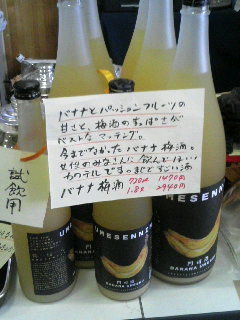 バナナとパッションフルーツの
甘さと、梅酒のすっぱさが
ベストなマッチング。
今までなかったバナナ梅酒。
女性のみなさんに飲んでほしい
バナナ梅酒
720ml 1470円
1.8ℓ 2940円
試飲用
URESENNI
BANANA UMESHU